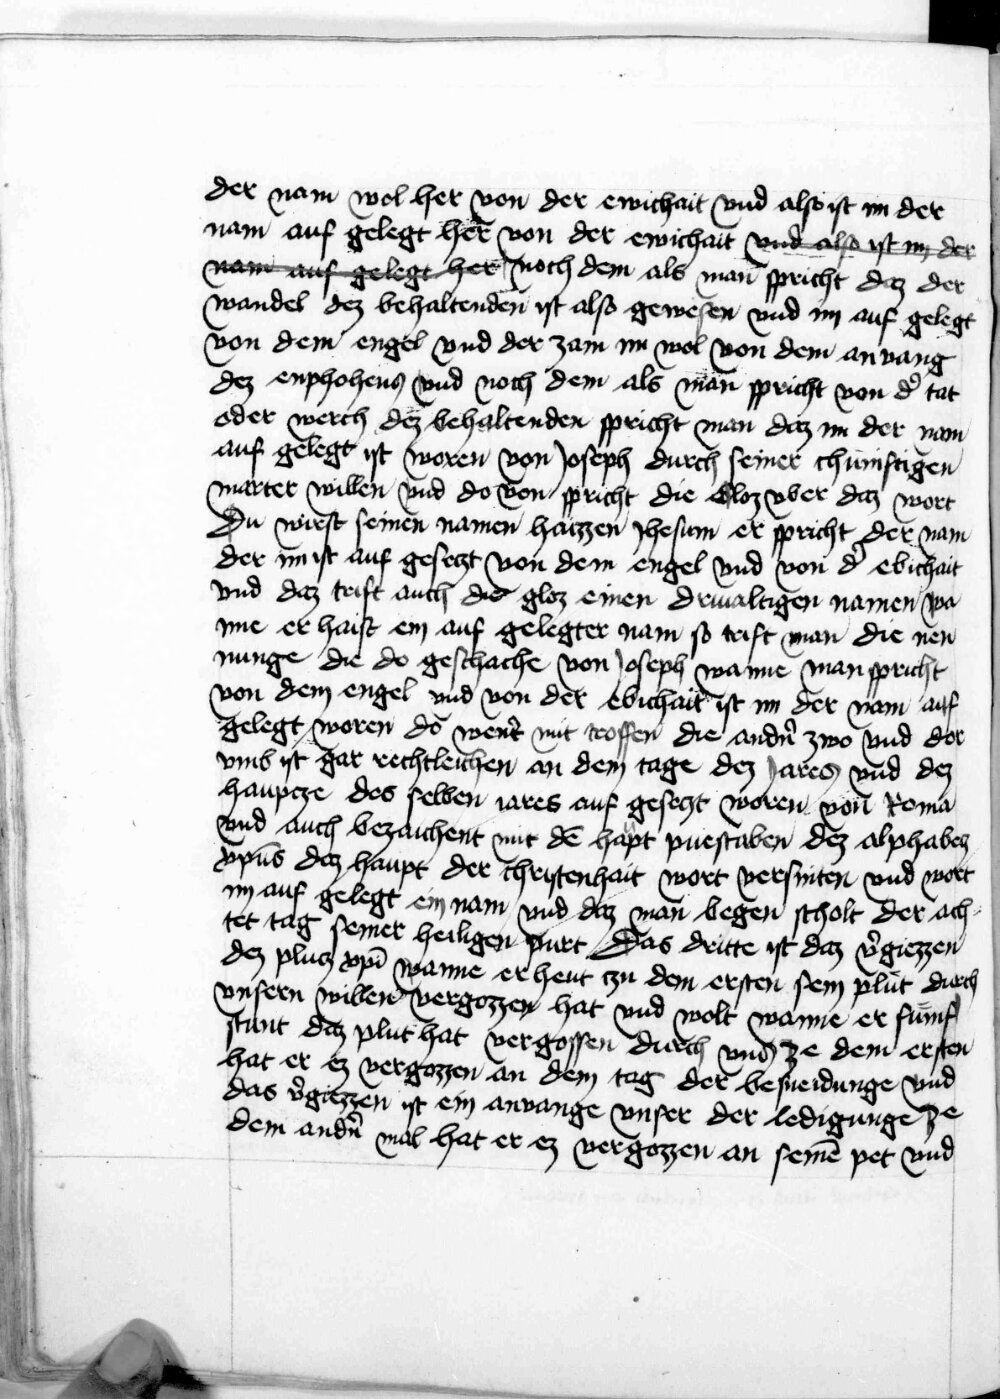 der nam wol her von der ewichait vnd also ist im der
nam auf gelegt her von der ewichait vnd also ist im der
nam auf gelegt her noch dem als man spricht daz der
wandel dez behaltenden ist also gewesen vnd im auf gelegt
von dem engel vnd der zam im wol von dem anvang
dez enphohens vnd noch dem als man spricht von dˀ tat
oder werch dez behaltenden spricht man daz im der nam
auf gelegt ist woren von Joseph durch seiner chumftigen
marter willen vnd do von spricht die Gloz vber daz wort
Du wirst seinen namen haizzen Jhesum er spricht der nam
der im ist auf gesetzt von dem engel vnd von dˀ ebichait
vnd daz trift auch die gloz einen drivaltigen namen wa
nne er haist ein auf gelegter nam so trift man die nen
nunge die do geschache von Joseph wanne man spricht
von dem engel vnd von der ebichait ist im der nam auf
gelegt woren do mit troffen die andn̄ zwo vnd dor
vmb ist gar rechtleichen an dem tage dez Jares vnd dez
haupcze des selben iares auf gesetzt woren von Roma
vnd auch bezaichent mit dē hapt puestaben dez alphabetz
xpūs daz haupt der christenhait wort versniten vnd wort
im auf gelegt ein nam vnd daz man begen scholt der ach-
tet tag seiner heiligen purt Das dritte ist daz v̄giezzen
dez plutz xpī wanne er heut czu dem ersten sein plut durch
vnsern willen vergozzen hat vnd wolt wanne er fumf
stunt daz plut hat vergossen durch vns ze dem ersten
hat er ez vergozzen an dem tag der besneidunge vnd
das v̄giezzen ist ein anvange vnser der ledigunge ze
dem andn̄ mal hat er ez vergozzen an seinē pet vnd